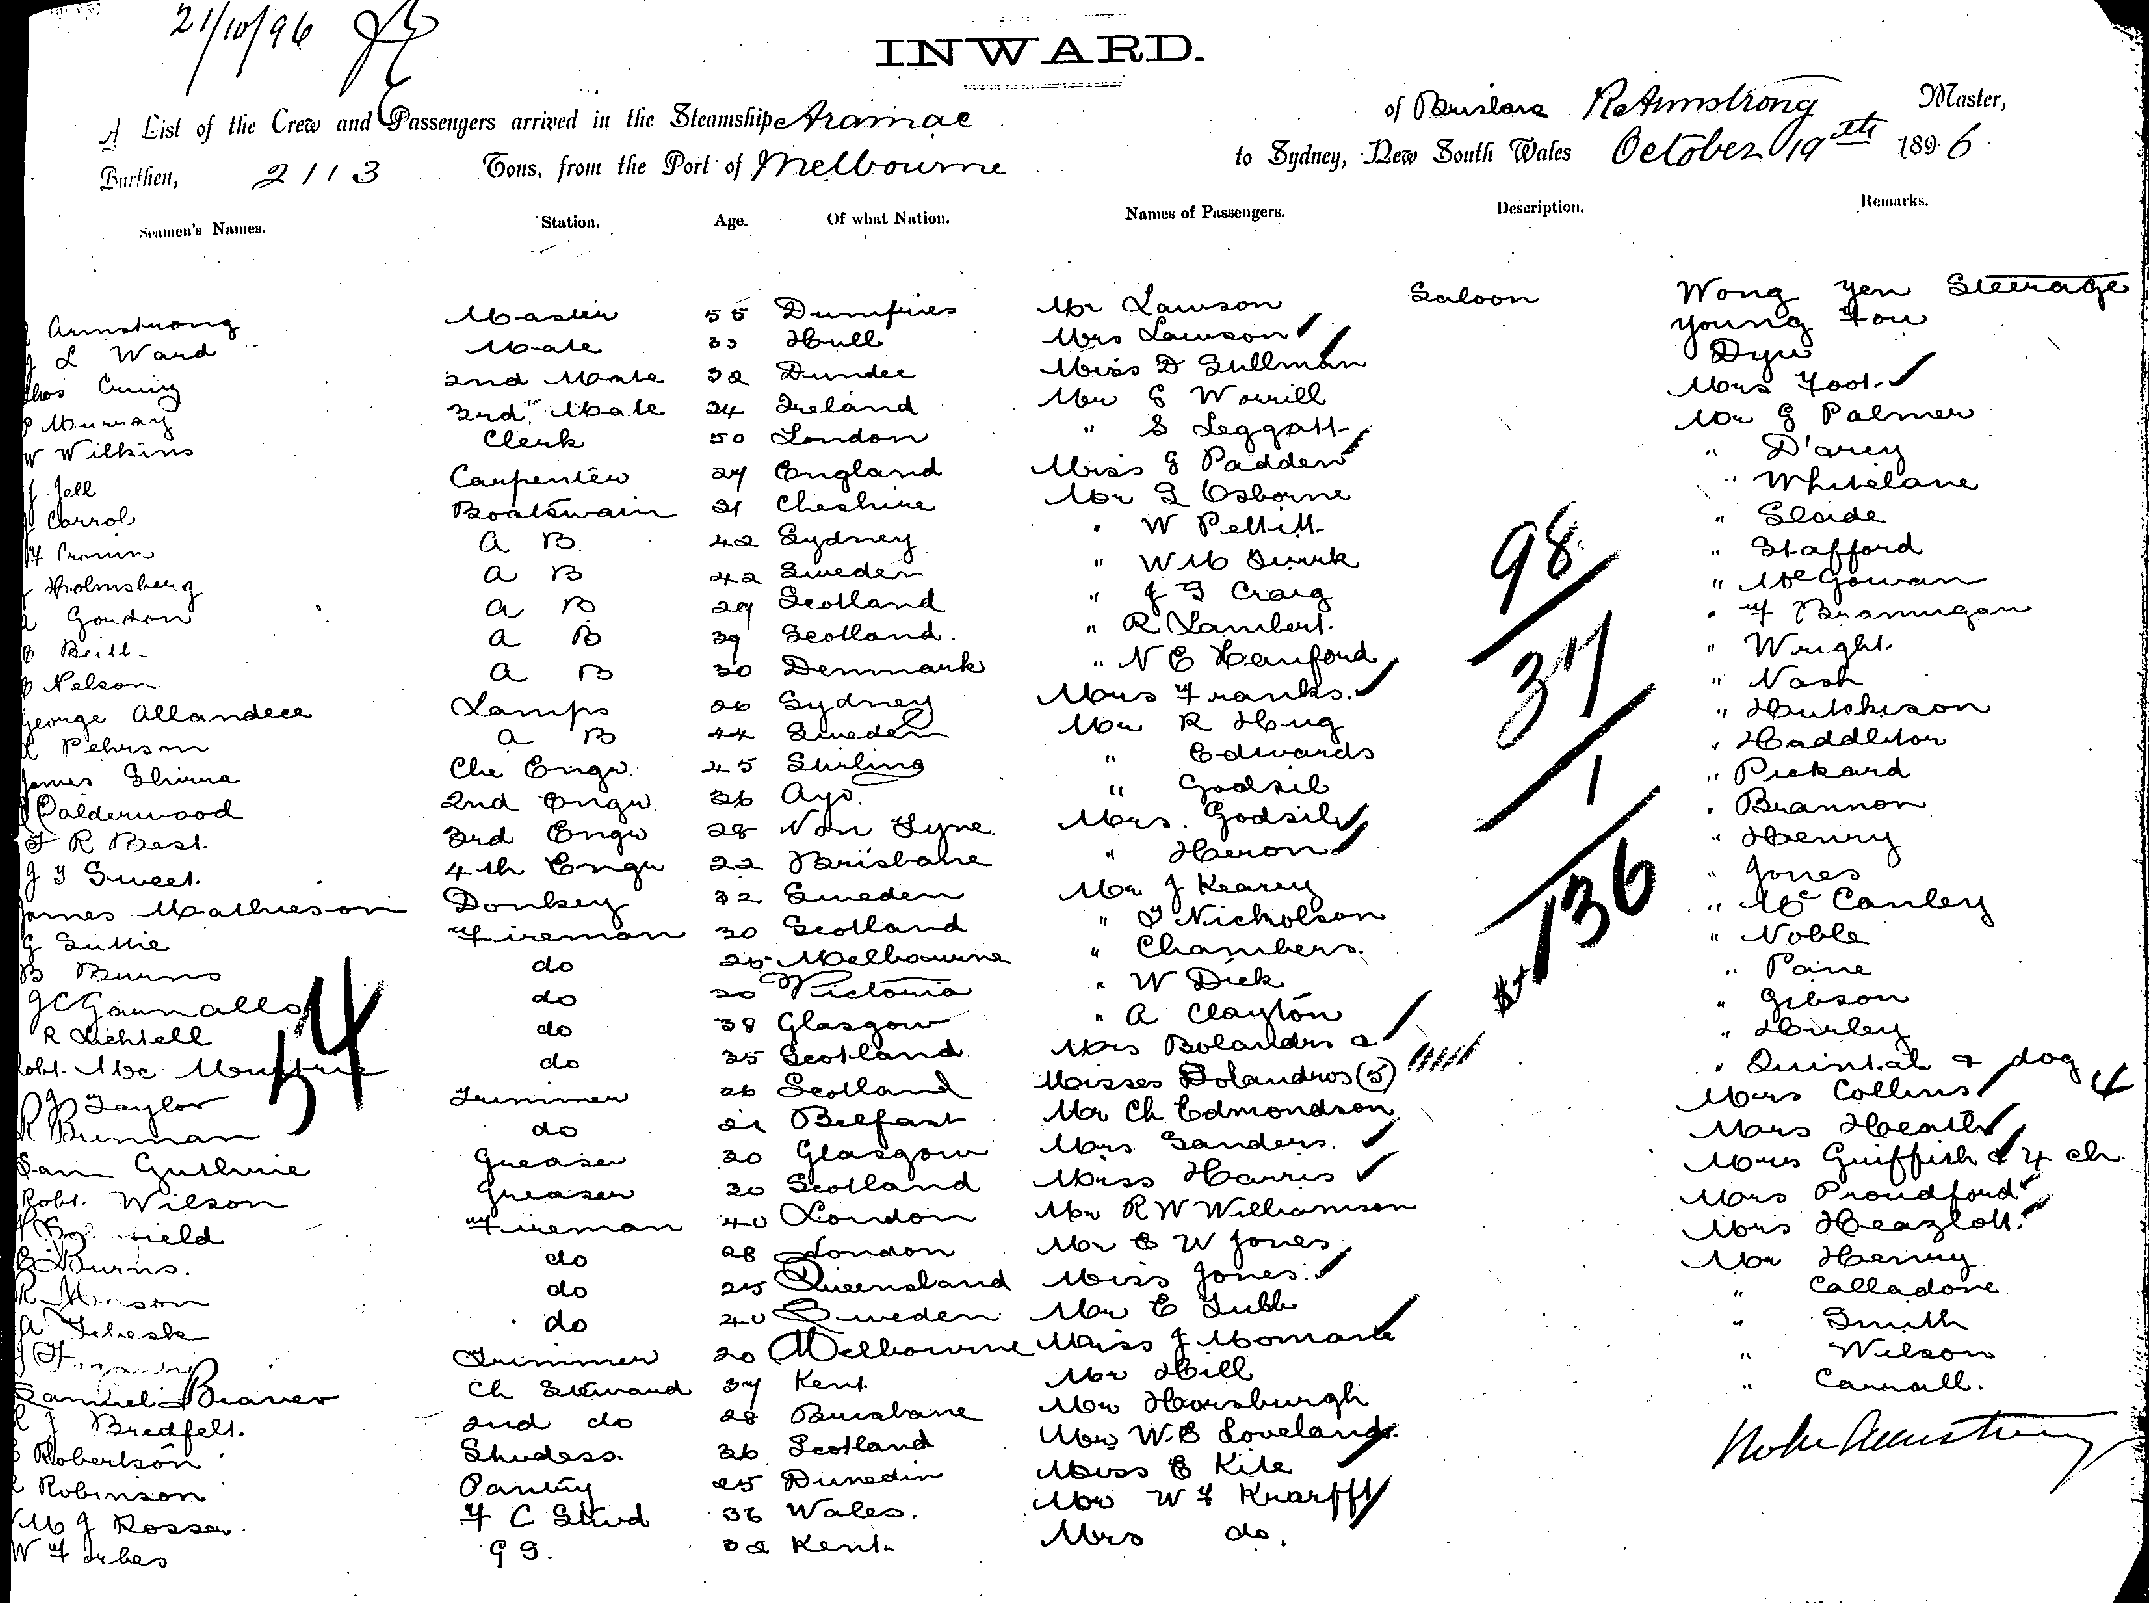 21/10/96
INWARD.
A List of the Crew and Passengers arrived in the Steamship Aramac of Brisbane R Armstrong Master,
Burthen, 2113 Tons, from the Port of Melbourne to Sydney, New South Wales October 19th 1896
Seamen's Names. Station. Age. Of what Nation. Names of Passengers. Description. Remarks.
Armstrong Master 55 Dumfries Mr Lawson Saloon Wong Yen Steerage
L Ward Mate 33 Hull Mrs Lawson Young Fou
2nd Mate 32 Dundee Miss D Sullman Dyer
Murray 3rd Mate 24 Ireland Mr G Worrill Mrs Foot
W Wilkins Clerk 50 London " S Leggatt Mr G Palmer
Jell Carpenter 27 England Miss G Padden " D'arcy
Carrol Boatswain 21 Cheshire Mr G Osborne " Whitelane
Cronin A B 42 Sydney " W Pettitt " Slade
Holmsberg A B 42 Sweden " W M Quirk " Stafford
Gordon A B 29 Scotland " J G Craig " McGowan
Beitt A B 39 Scotland. " R Lambert. " F Brannigan
Nelson A B 30 Denmark " N E Hanford " Wright.
George Allandece Lamps 26 Sydney Mrs Franks. " Nash
Pehrson A B 44 Sweden Mr R Hug " Hutchison
James Shirra Che Engr. 45 Stirling " Edwards " Haddleton
Calderwood 2nd Engr. 36 Ayr. " Godsil " Pickard
F R Best. 3rd Engr 28 N on Tyne Mrs. Godsil " Brannon
J G Sweet. 4th Engr 22 Brisbane " Heron " Henry
James Mathieson Donkey 32 Sweden Mr J Kearey " Jones
G Suttie Fireman 30 Scotland " T Nicholson " McCauley
B Burns do 25 Melbourne " Chambers. " Noble
do 30 Victoria " W Dick " Paine
R Lichtell do 38 Glasgow " A Clayton " Gibson
Robt. Mc do 35 Scotland Mrs Bolandros & " Hurley
Taylor Trimmer 26 Scotland Misses Bolandros (5) " Quintal & dog
R Brennan do 21 Belfast Mr Ch Edmondson Mrs Collins 4
Sam Guthrie Greaser 30 Glasgow Mrs Sanders. Mrs Heath
Robt. Wilson Greaser 30 Scotland Miss Harris Mrs Griffith & 4 ch
Fireman 40 London Mr R W Williamson Mrs Proudford
Burns. do 28 London Mr E W Jones Mrs Heazlott.
do 25 Queensland Miss Jones. Mr Henry
do 40 Sweden Mr E Tubb " Calladone
Trimmer 20 Melbourne Miss J Momark " Smith
Samuel Beaver Ch Steward 37 Kent Mr Hill " Wilson
Bredfelt. 2nd do 28 Brisbane Mr Horsburgh " Carnall.
Robertson Stwdess. 36 Scotland Mrs W.E Loveland.
Robinson Pantry 25 Dunedin Miss E Kite
J Rosser F C Stwd 36 Wales. Mr W F Krarfft
W Forbes 9 S. 32 Kent. Mrs do.
54
98
37
1
136